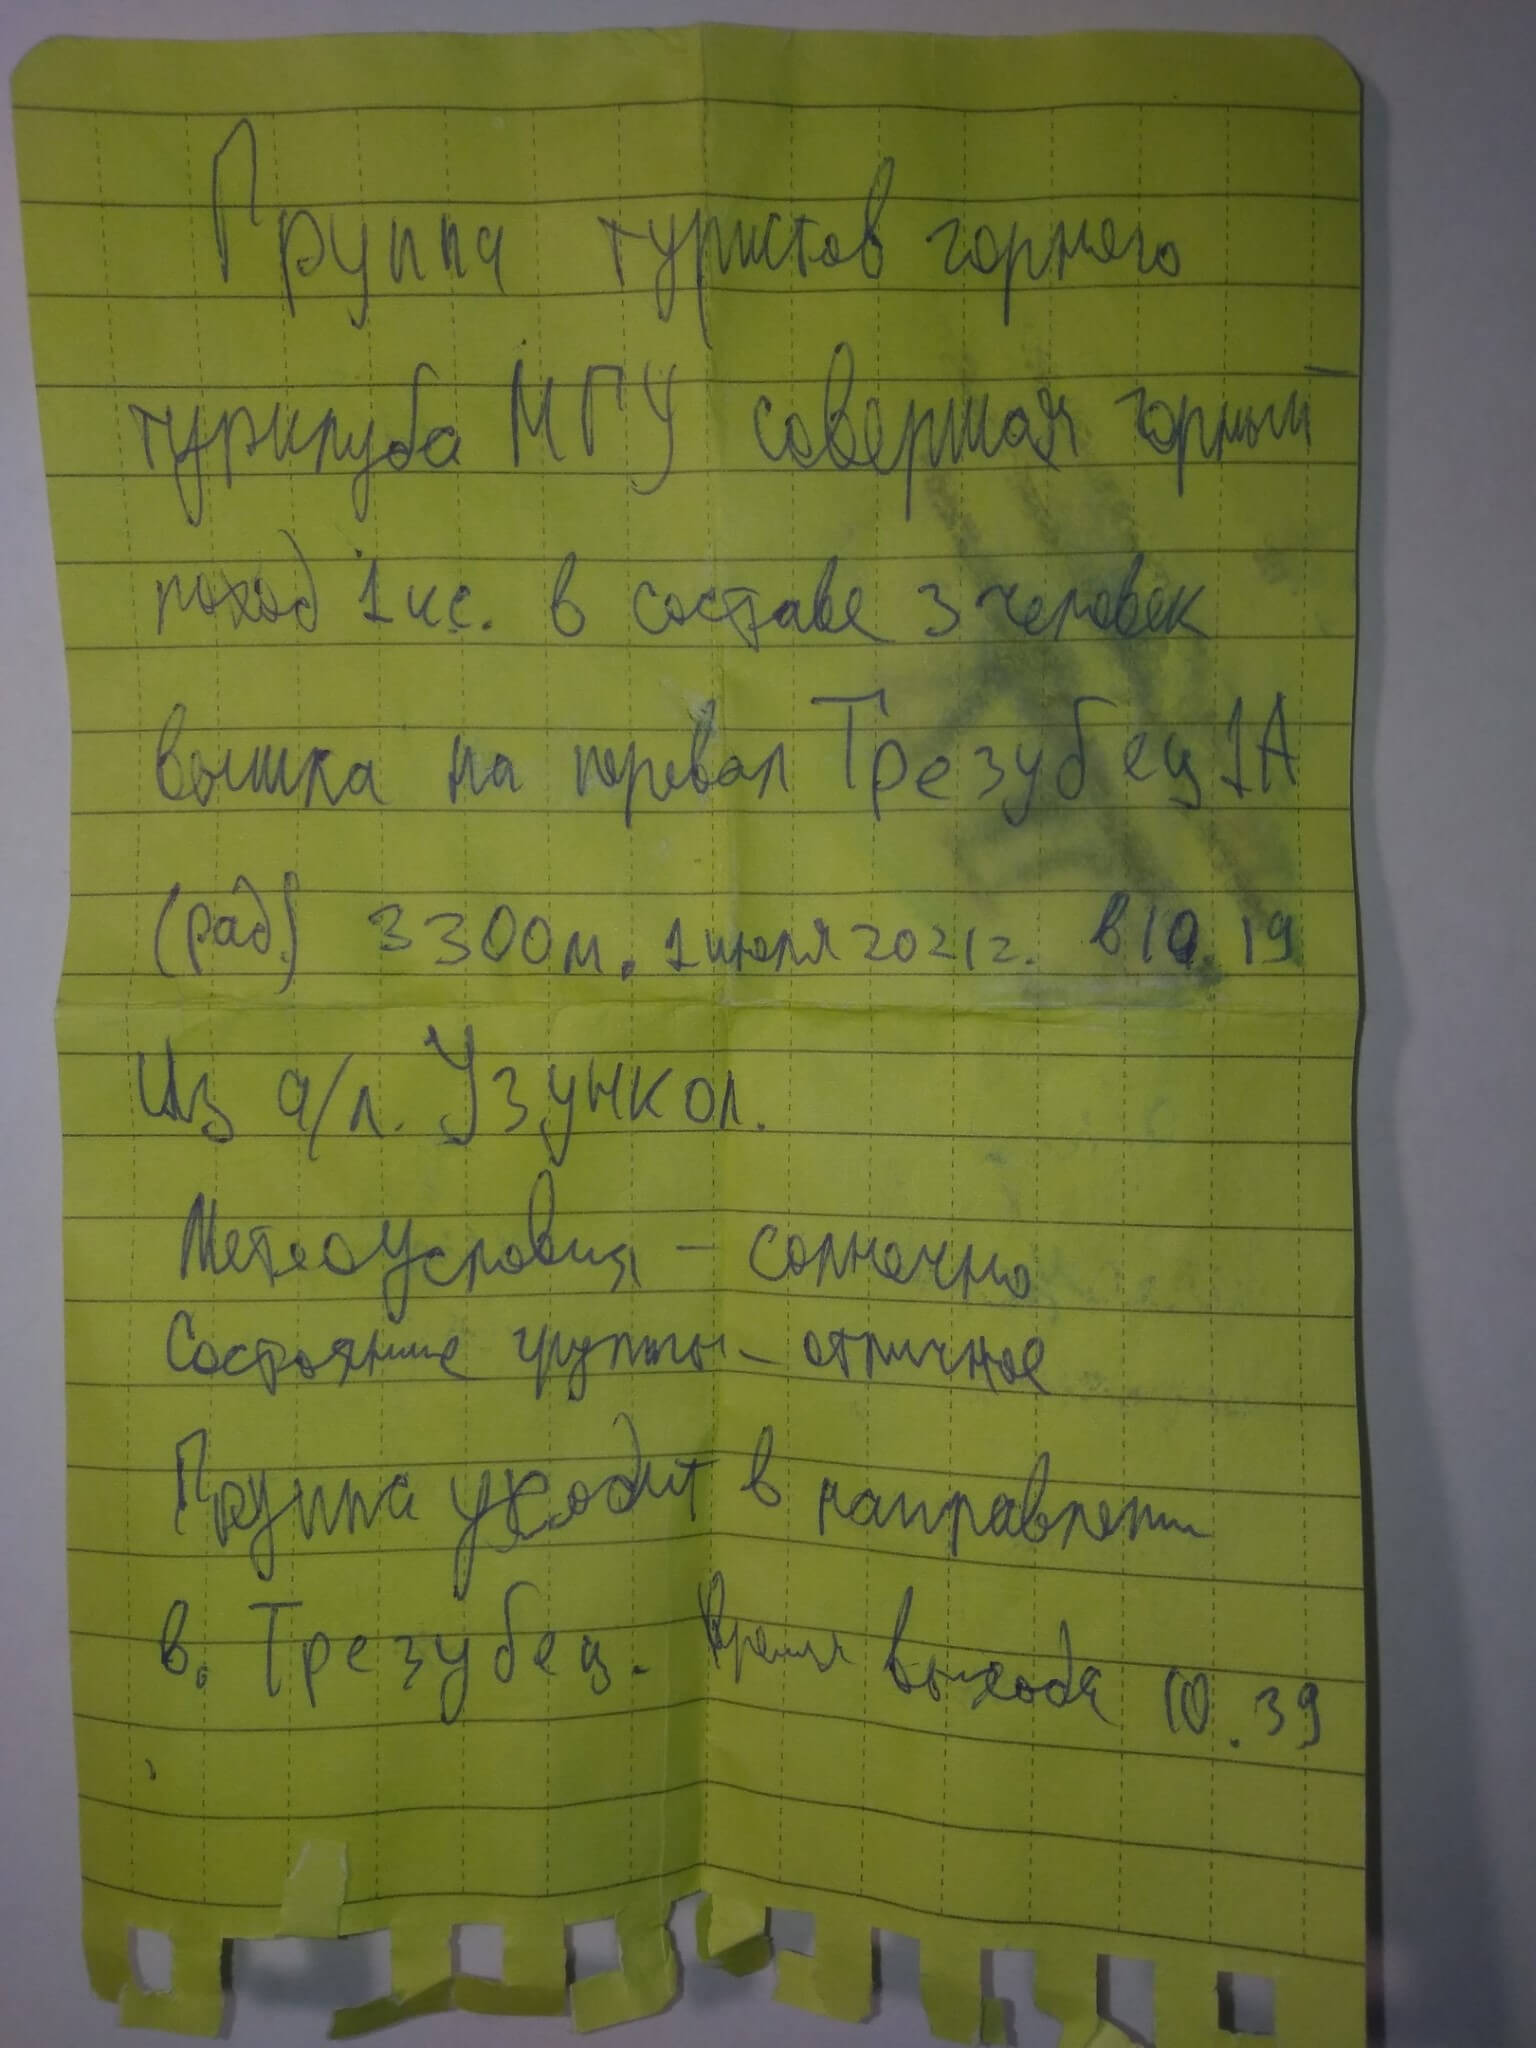 Группа туристов горного
турклуба МГУ совершая горный
поход 1 к.с. в составе 3 человек
вышла на перевал Трезубец 1А
(рад.) 3300м. 1 июля 2021г. в 10.19
Из а/л. Узункол.
Метеоусловия - солнечно
Состояние группы - отличное
Группа уходит в направлении
в. Трезубец. Время выхода 10.39